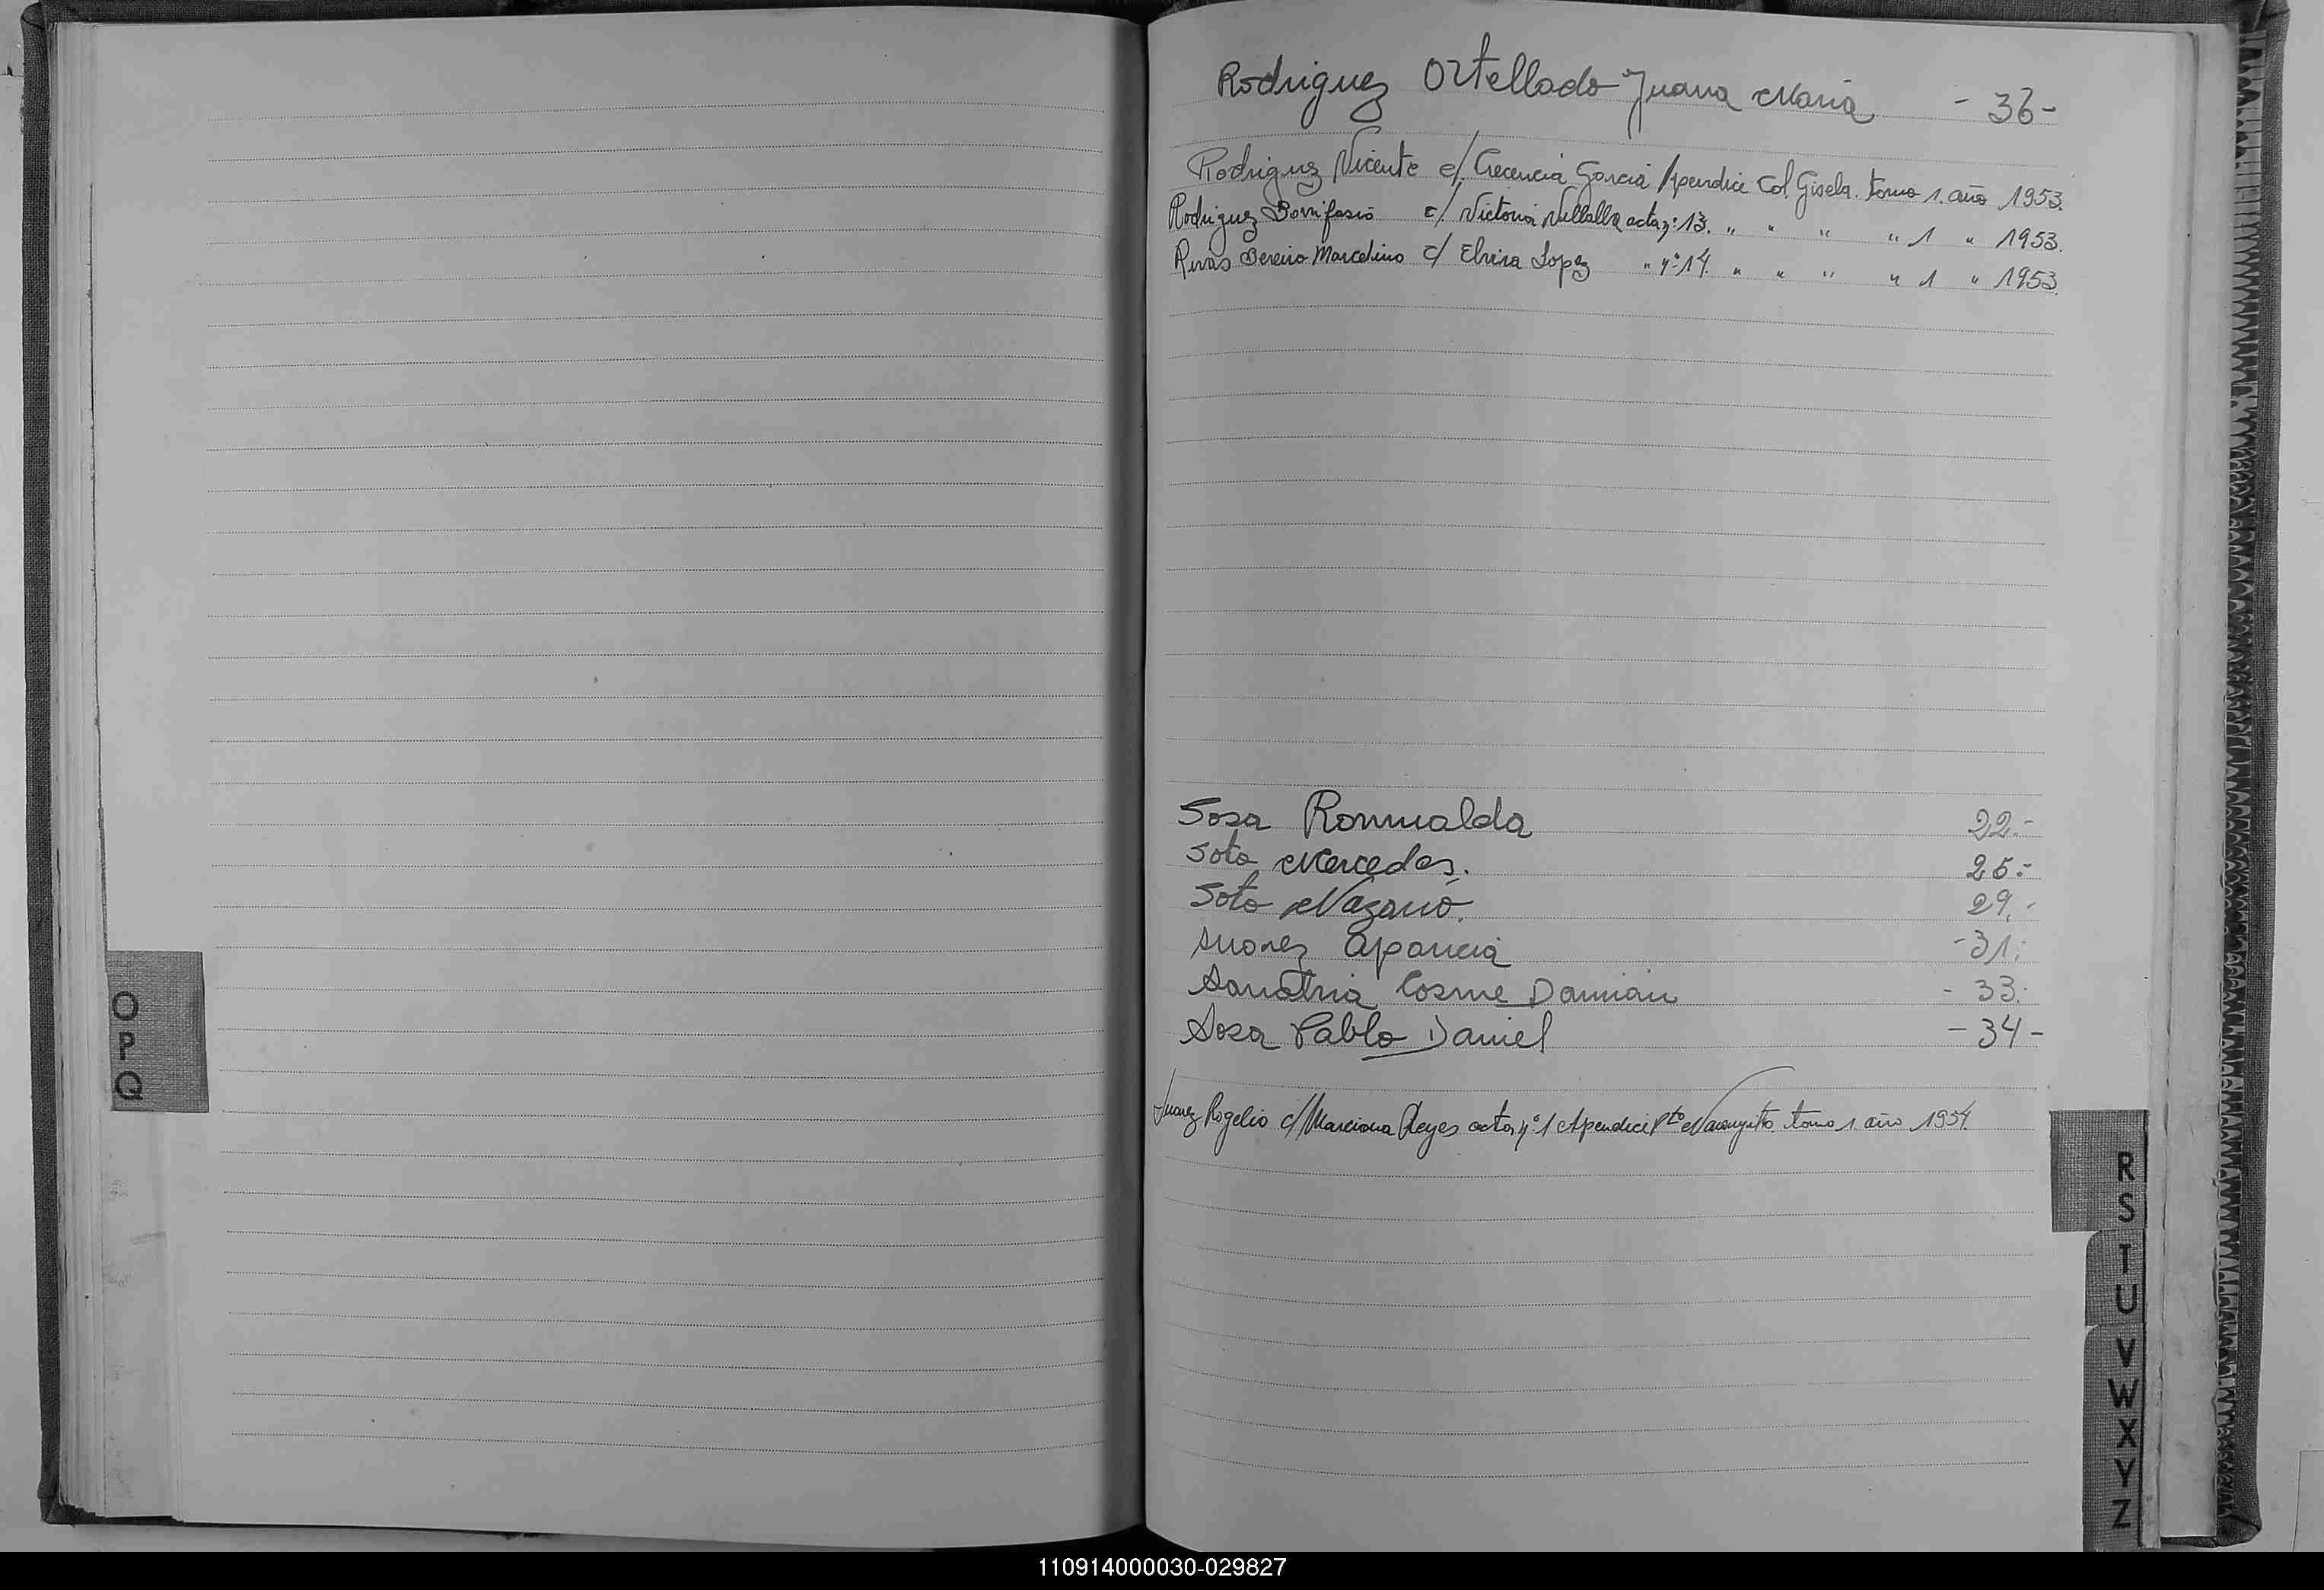 Rodriguez Ortellado Juana Maria - 36 -
Rodriguez Vicente c/. Crecencia Garcia Apendice Col. Gisela. tomo 1. año 1953.
Rodriguez Bonifasio c/ Victoria acta nº 13. " " " " 1 " 1953.
Rivas Pereira Marcelino c/ Elvira Lopez " nº 14. " " " " 1 " 1953.
Sosa Romualda 22.-
Soto Mercedes. 25.-
Soto Nazario. 29.-
Suarez Aparicia -31.-
Sanatria Cosme Damian - 33.-
Sosa Pablo Daniel - 34 -
Suarez Rogelio c/ Marciana Reyes acta nº 1 Apendice Pto Naranjito. tomo 1. año 1954.
O
P
Q
R
S
T
U
V
W
X
Y
Z
110914000030-029827